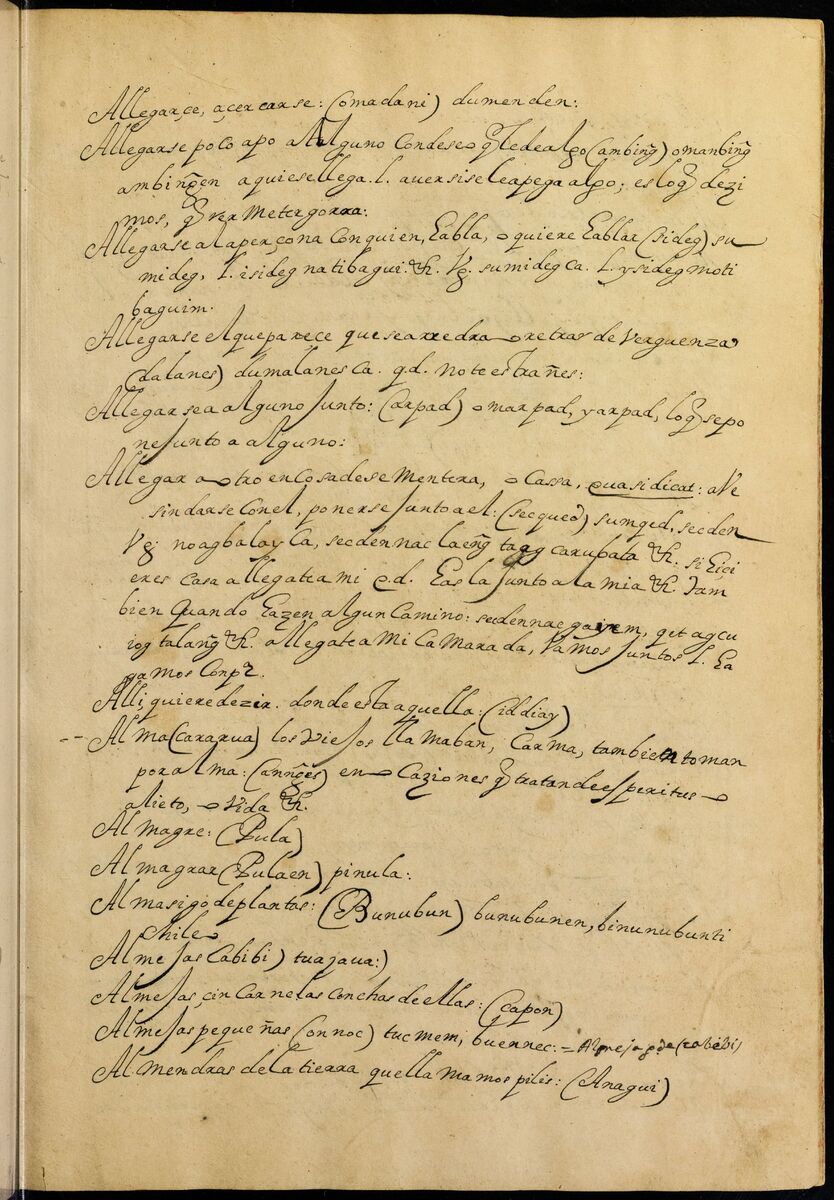 Allegarçe, açercarse: (omadani) dumenden:
Allegarse poco apo a Alguno condeseo q̃ lede algo (ambing̃) omanbing̃
ambing̃en aquiesellega. l. auersiseleapega algo; es loq̃ dezi
mos, q̃rer metergorra:
Allegarse alaperçona conquien, Eabla, o quiere Eablar (sideg) su
mideg, l. isideg natibagui. &. Vg. sumidegca. l. ysidegmoti
baguim.
Allegarse elqueparece quesearredra oretrae de Verguenza
(dalanes) dumalanesca. qd. noteestrañes:
Allegarsea alguno Junto: (arpad) omarpad, yarpad, loq̃ sepo
neJunto a alguno:
Allegar a otro encosadesementera, o cassa, quasidicat: aVe
sindarse conel, ponerse Junto a el: (secqued) sumqed, secden
Vg: noagbalayca, secdennac laeng̃ tagg carubata &. si Eiçi
eres casa allegateami q.d. Easla Junto a la mia &. Tam
bien quando Eazen algun camino: secdennac gayem, qet agcu
iog talang̃ &. allegateami camarada, Vamos Juntos l. Ea
gamos Conpª.
Alli quieredezir. donde esta aquella: (iddiay)
Alma (cararua) los ViеJos llamaban, Carma, tambien toman
poralma: (anng̃es) en ocaziones q̃ tratandeesperitus o
alieto, o Vida &.
Almagre: (Pula)
Almagrar (Pulaen) pinula:
Almasigo deplantas: (Bunubun) bunubunen, binunubunti
chile
AlmeJas Cabibi) tuazaua:)
AlmeJas, sin carnelas conchas de ellas: (capon)
AlmeJas pequeñas (onnoc) tucmem, buennec: = Almejas gde (cabibi)
Almendras dela tierra quellamamos pilis: (Anagui)